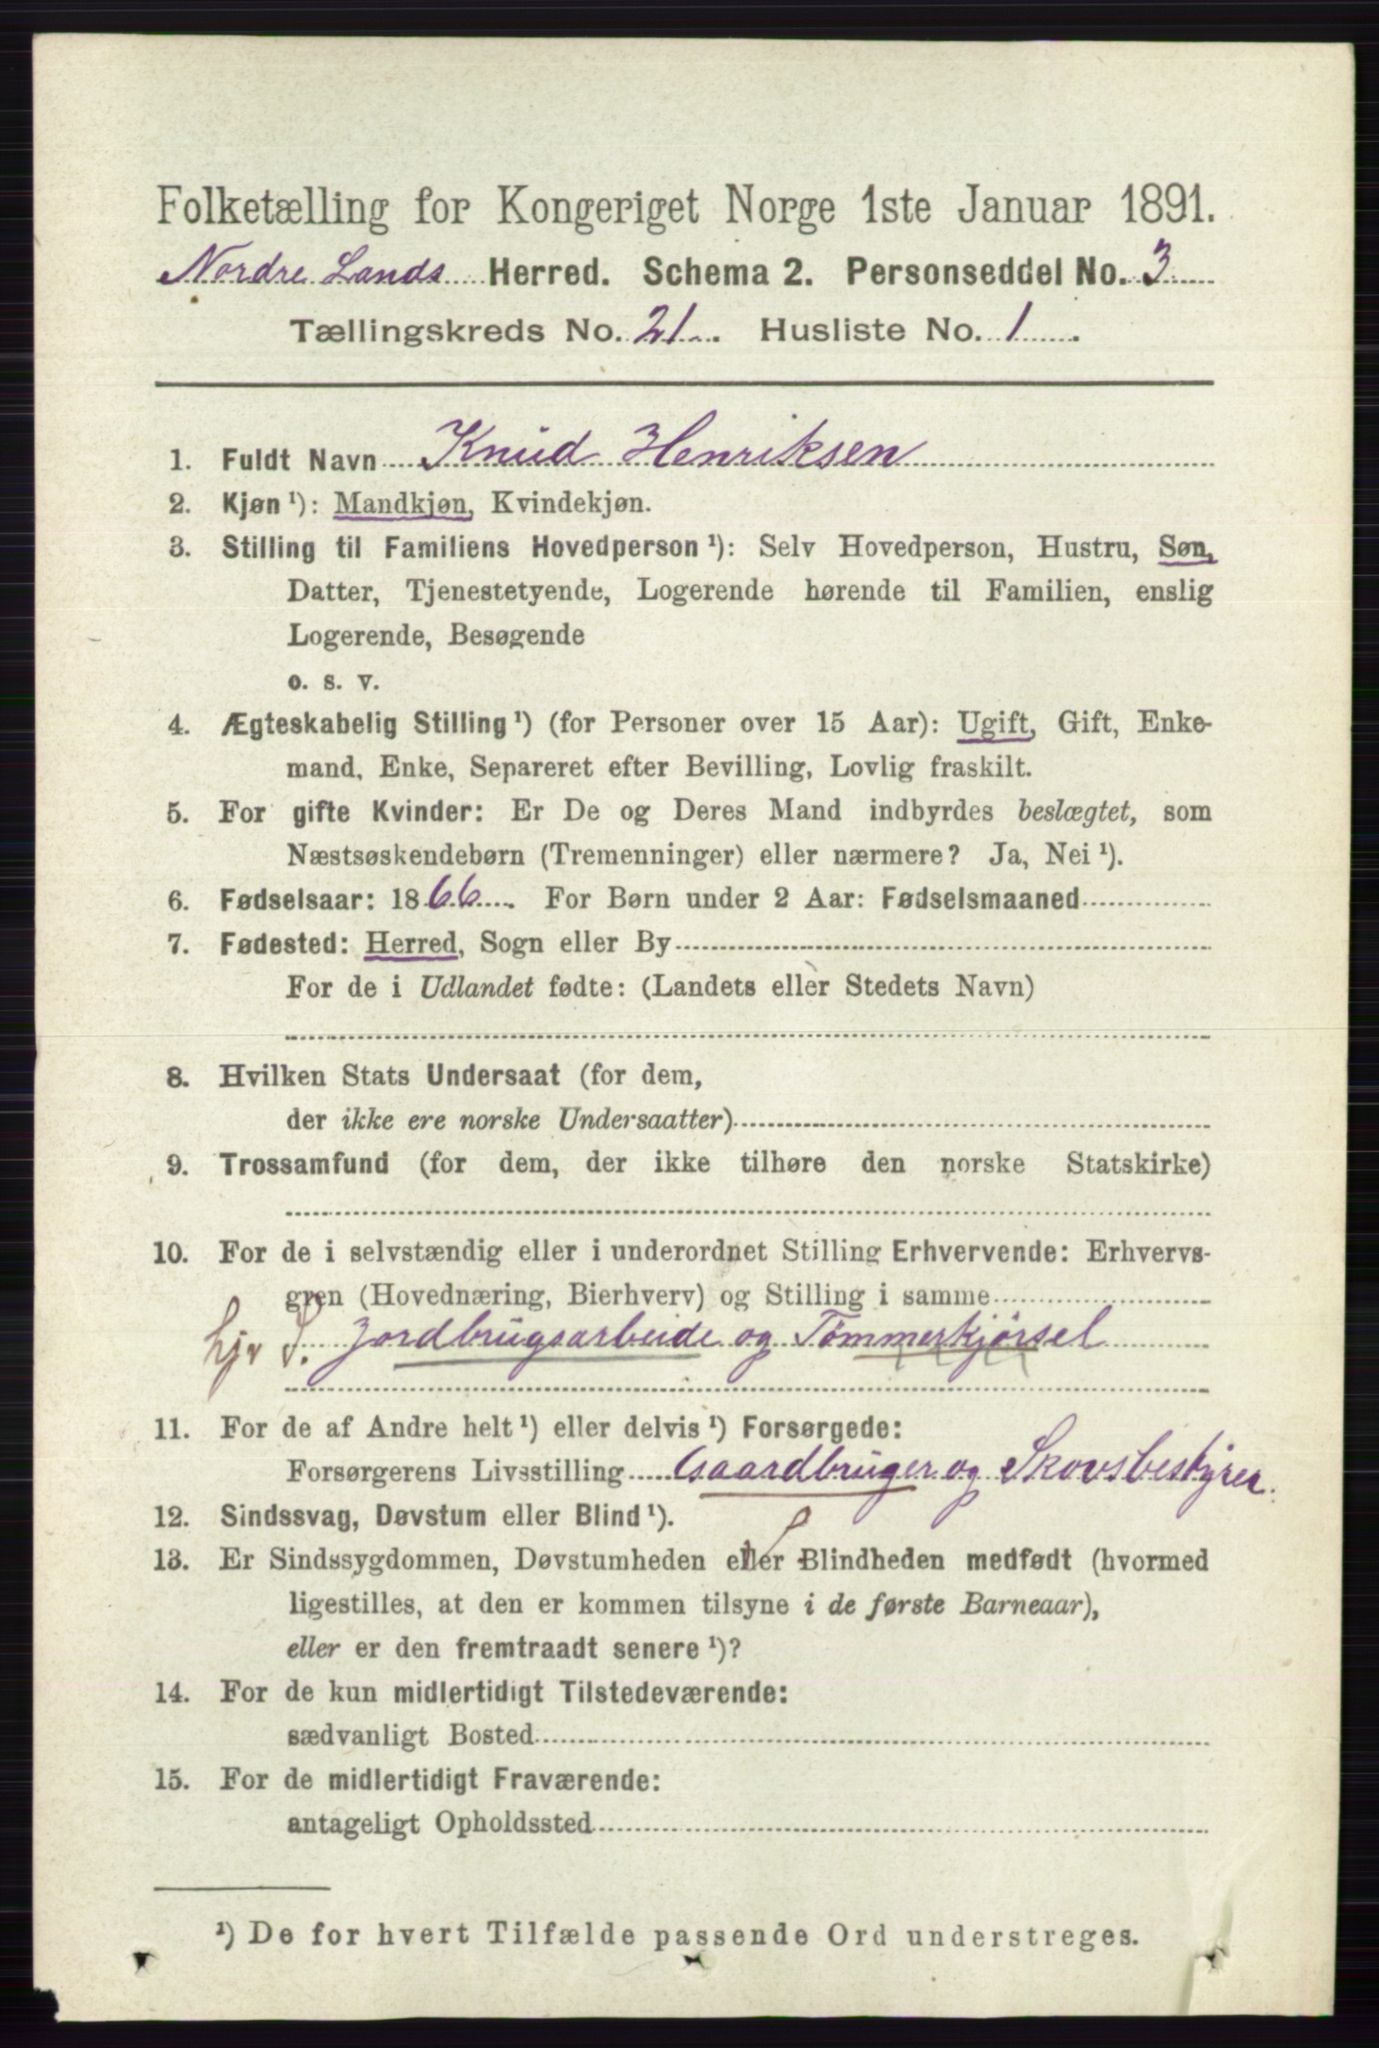 Folketælling for Kongeriget Norge 1ste Januar 1891.
Nordre Lands Herred. Schema 2. Personseddel No. 3
Tællingskreds No. 21. Husliste No. 1.
1. Fuldt Navn Knud Henriksen
2. Kjøn ¹): Mandkjøn, Kvindekjøn.
3. Stilling til Familiens Hovedperson ¹): Selv Hovedperson, Hustru, Søn,
Datter, Tjenestetyende, Logerende hørende til Familien, enslig
Logerende, Besøgende
o. s. v.
4. Ægteskabelig Stilling ¹) (for Personer over 15 Aar): Ugift, Gift, Enke-
mand, Enke, Separeret efter Bevilling, Lovlig fraskilt.
5. For gifte Kvinder: Er De og Deres Mand indbyrdes beslægtet, som
Næstsøskendebørn (Tremenninger) eller nærmere? Ja, Nei ¹).
6. Fødselsaar: 1866. For Børn under 2 Aar: Fødselsmaaned
7. Fødested: Herred, Sogn eller By
For de i Udlandet fødte: (Landets eller Stedets Navn)
8. Hvilken Stats Undersaat (for dem,
der ikke ere norske Undersaatter)
9. Trossamfund (for dem, der ikke tilhøre den norske Statskirke)
10. For de i selvstændig eller i underordnet Stilling Erhvervende: Erhvervs-
gren (Hovednæring, Bierhverv) og Stilling i samme
hjv S. Jordbrugsarbeide og Tømmerkjørsel
11. For de af Andre helt ¹) eller delvis ¹) Forsørgede:
Forsørgerens Livsstilling Gaardbruger og Skovsbestyrer.
12. Sindssvag, Døvstum eller Blind ¹).
13. Er Sindssygdommen, Døvstumheden eller Blindheden medfødt (hvormed
ligestilles, at den er kommen tilsyne i de første Barneaar),
eller er den fremtraadt senere ¹)?
14. For de kun midlertidigt Tilstedeværende:
sædvanligt Bosted
15. For de midlertidigt Fraværende:
antageligt Opholdssted
¹) De for hvert Tilfælde passende Ord understreges.